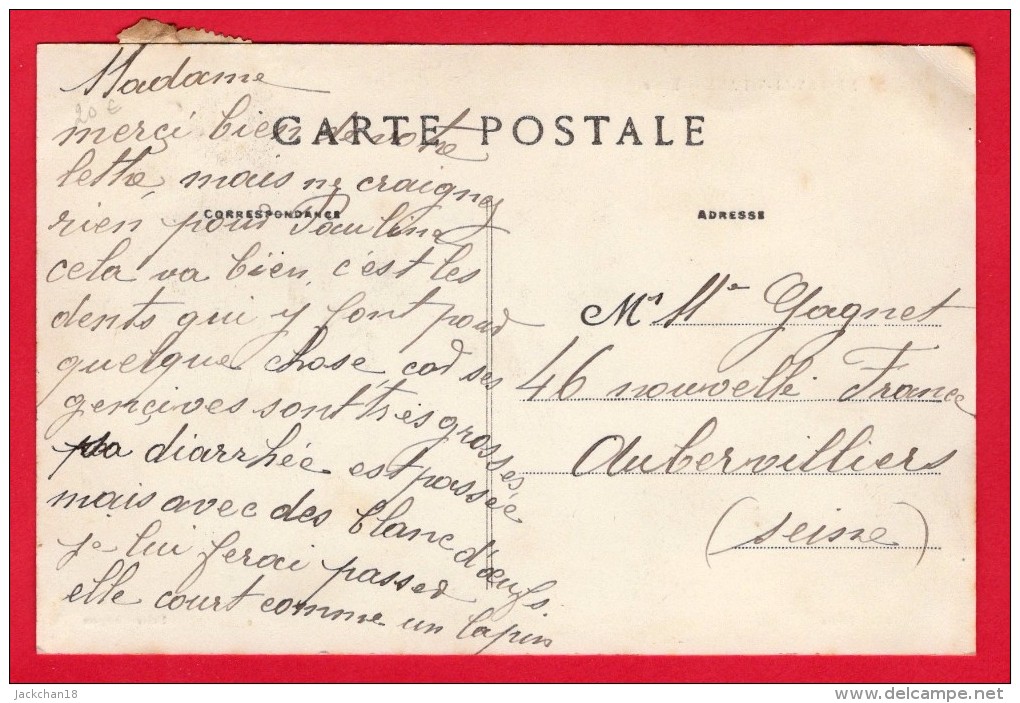 Madame
20 €
merçi bien de votre
CARTE POSTALE
lettre, mais ne craignez
CORRESPONDANCE
rien pour Pauline
cela va bien, c'est les
dents qui y font pour
quelque chose, car ses
gençives sont très grosses,
sa diarrhée est passée
mais avec des blanc d'œufs
je lui ferai passer
elle court comme un lapin
ADRESSE
Mr Me Gagnet
46 nouvelle France
Aubervilliers
(Seine)
jackchan18
www.delcampe.net